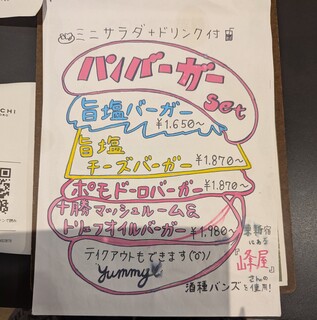 ミニサラダ+ドリンク付
ハンバーガー
set
旨塩バーガー
¥1.650~
旨塩
チーズバーガー
¥1.870~
ポモドーロバーガー
¥1.870~
十勝マッシュルーム&
トリュフオイルバーガー
¥1.980~
テイクアウトもできます(^o^)
yummy
東新宿
にある
『峰屋』
さんの
酒種バンズを使用!
CHI